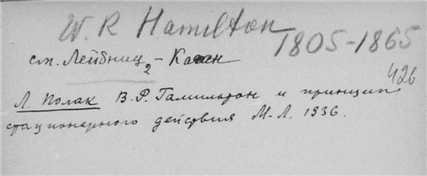 W. R Hamilton
1805-1865
см. Лейбниц 2 - Каган
426
Л. Полак В. Р. Гамильтон и принцип
стационарного действия М-Л. 1936.